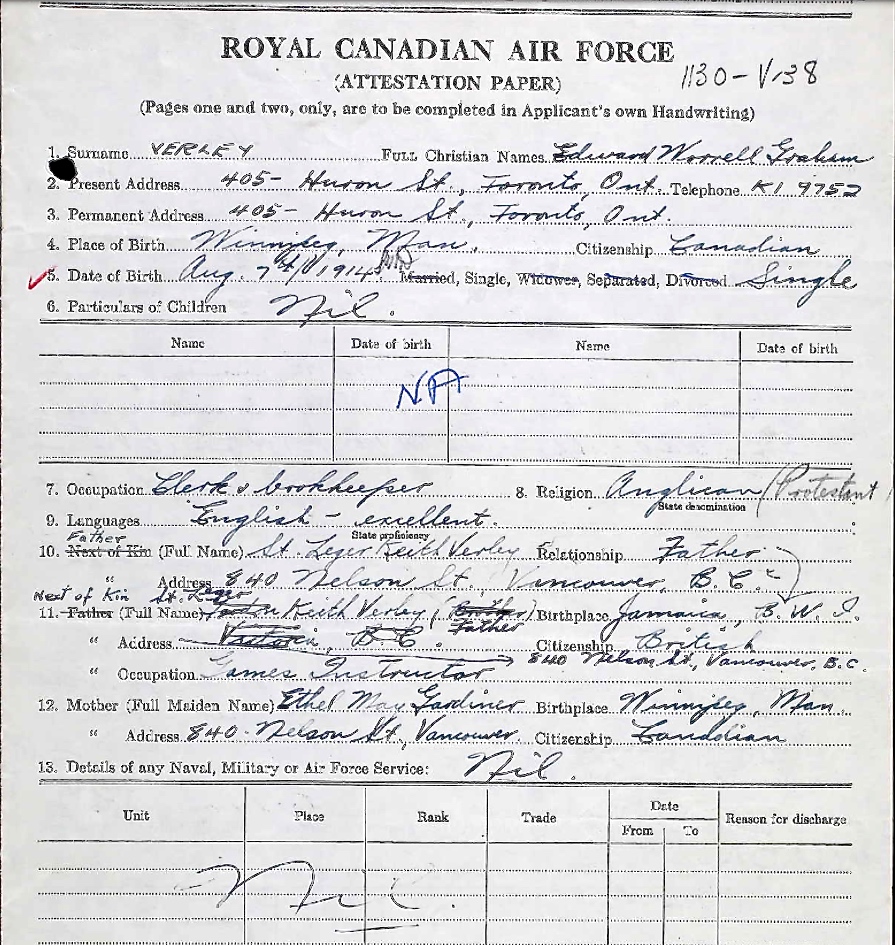 ROYAL CANADIAN AIR FORCE
(ATTESTATION PAPER)
1130-V-38
(Pages one and two, only, are to be completed in Applicant's own Handwriting)
1. Surname VERLEY FULL Christian Names Edward Worrell Graham
2. Present Address 405- Huron St., Toronto, Ont. Telephone KI 9752
3. Permanent Address 405- Huron St., Toronto, Ont.
4. Place of Birth Winnipeg, Man. Citizenship Canadian
5. Date of Birth Aug. 7th/1914 Married, Single, Widower, Separated, Divorced Single
6. Particulars of Children Nil.
Name Date of birth Name Date of birth
NA
7. Occupation Clerk & bookkeeper 8. Religion Anglican (Protestant)
State denomination
9. Languages English - excellent.
State proficiency
Father
10. Next of Kin (Full Name) St. Leger Keith Verley Relationship Father
" Address 840 Nelson St., Vancouver, B.C.
Next of Kin St. Leger
11. Father (Full Name) Keith Verley (Father) Birthplace Jamaica, B.W.I.
" Address Victoria, B.C. Citizenship British
840 Nelson St., Vancouver, B.C.
" Occupation Games Instructor
12. Mother (Full Maiden Name) Ethel May Gardiner Birthplace Winnipeg, Man.
" Address 840- Nelson St., Vancouver. Citizenship Canadian
13. Details of any Naval, Military or Air Force Service: Nil.
Unit Place Rank Trade Date Reason for discharge
From To
Nil.